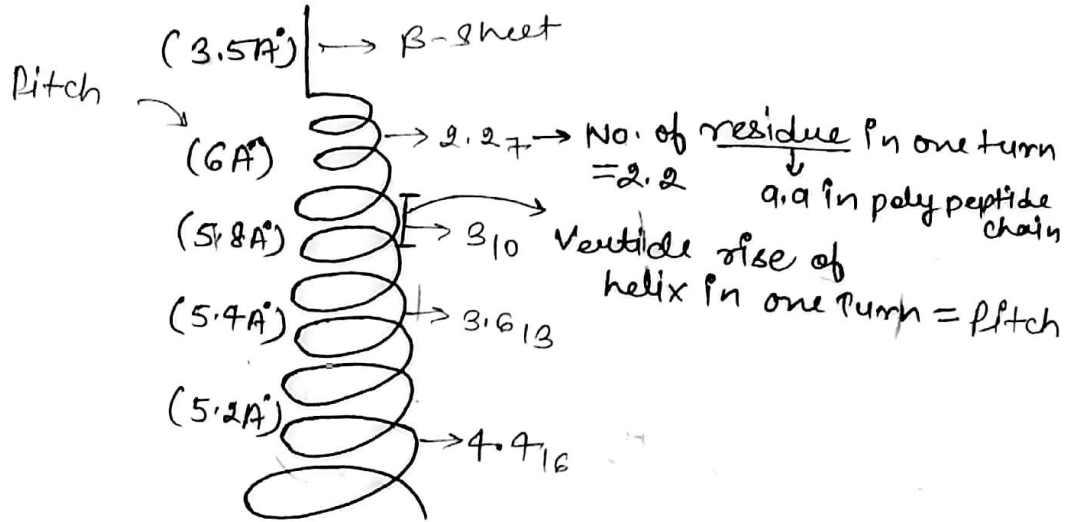 (3.5A°) → β-sheet
Pitch
(6A°) → 2.2₇ → No. of residue in one turn
= 2.2
a.a in poly peptide
chain
(5.8A°) → 3₁₀
rise of
helix in one turn = Pitch
(5.4A°) → 3.6₁₃
(5.2A°) → 4.4₁₆